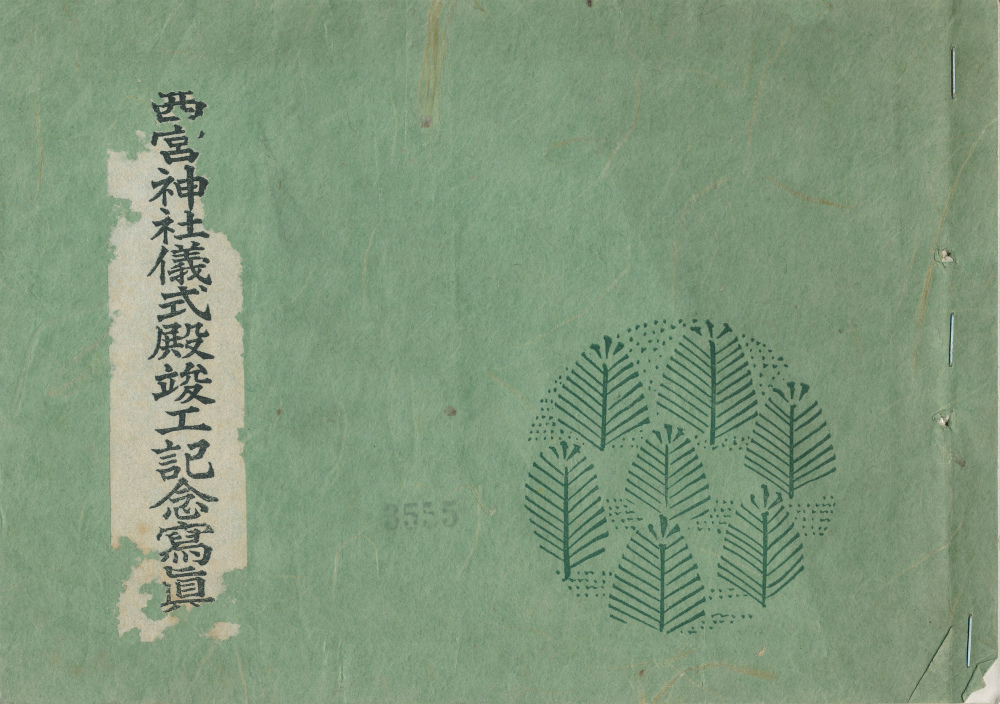 西宮神社儀式殿竣工記念寫眞
3555